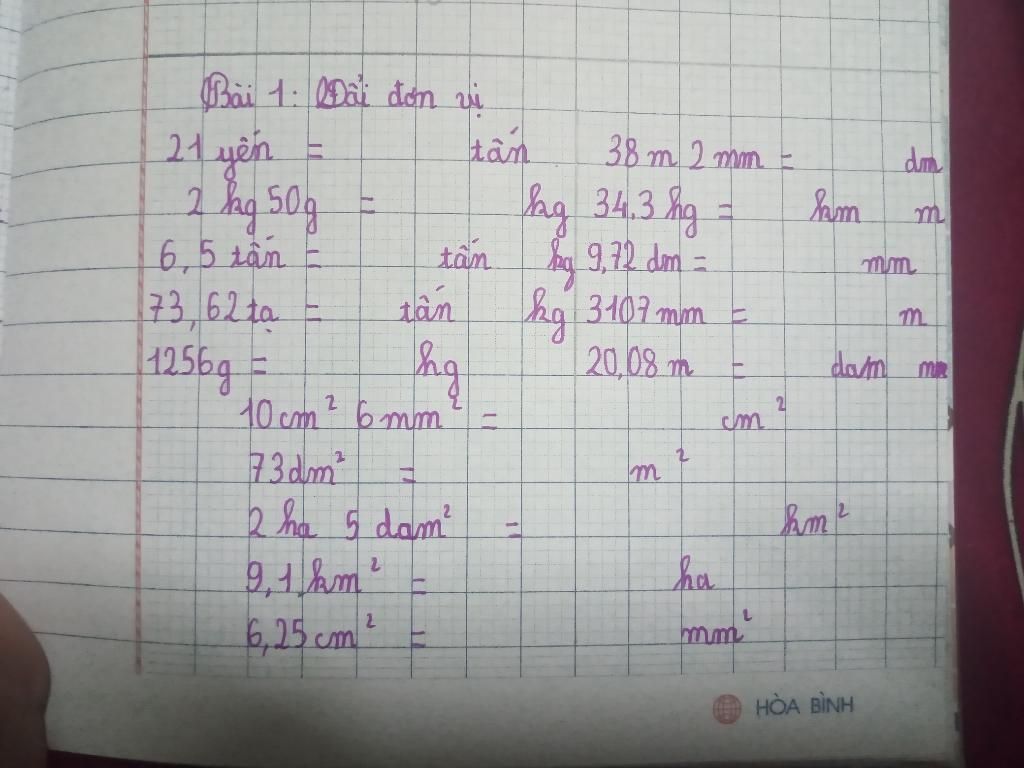 Bài 1: Đổi đơn vị
21 yến = tấn 38 m 2 mm = dm
2 kg 50g = kg 34,3 kg = km m
6,5 tấn = tấn kg 9,72 dm = mm
73,62 tạ = tấn kg 3107 mm = m
1256g = kg 20,08 m = dam mm
10 cm² 6 mm² = cm²
73 dm² = m²
2 ha 5 dam² = km²
9,1 km² = ha
6,25 cm² = mm²
HÒA BÌNH